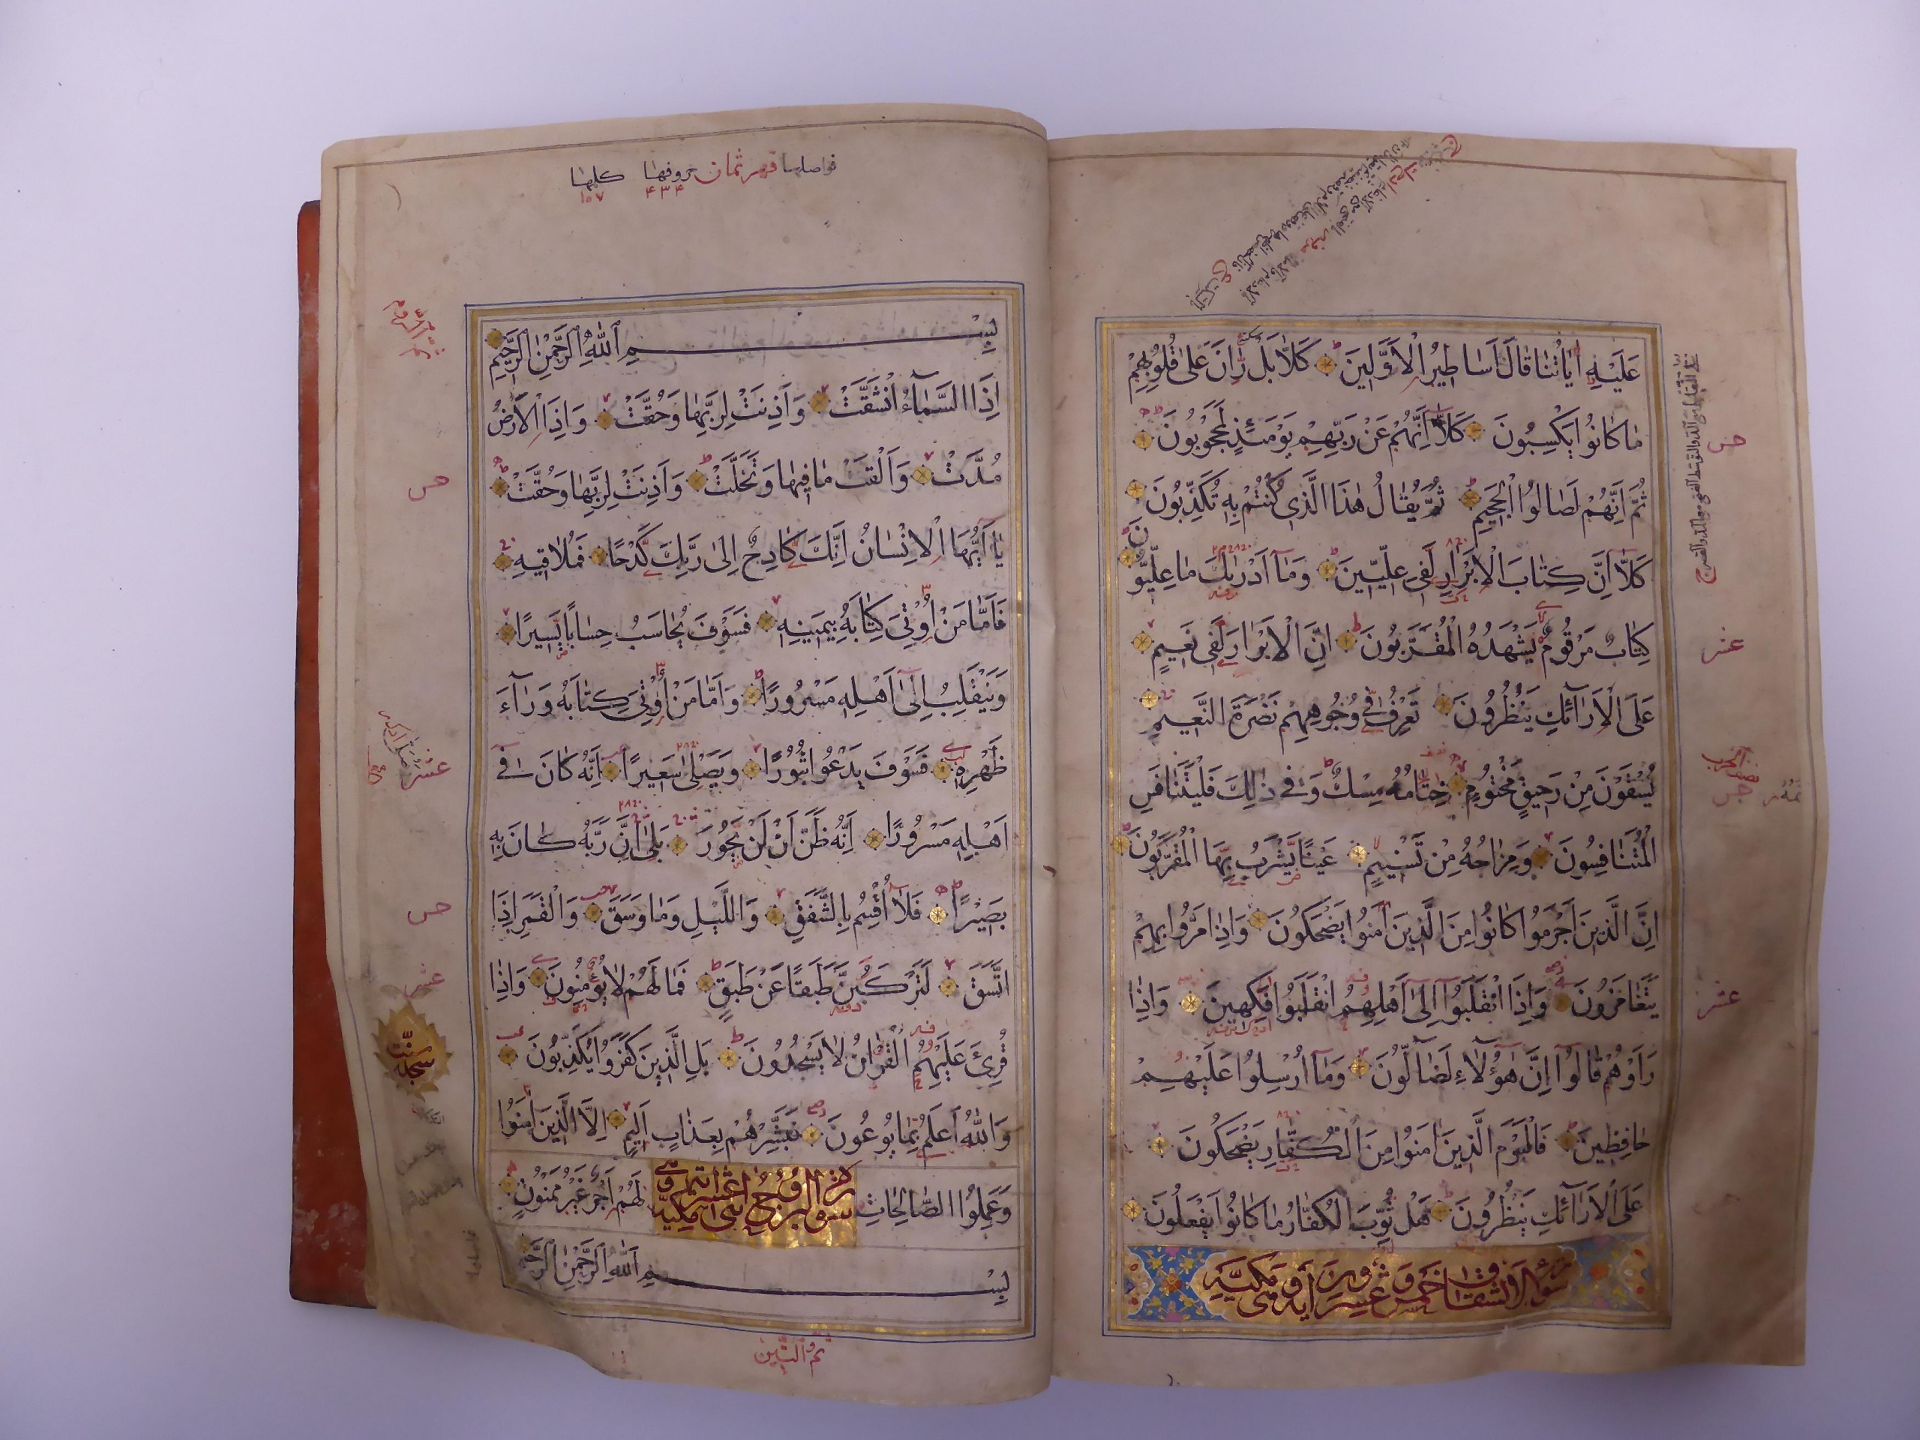 عَلَيْهِ اٰيَاتُنَا قَالَ اَسَاطِيرُ الْاَوَّلِينَ كَلَّا بَلْ رَانَ عَلٰى قُلُوبِهِمْ
مَا كَانُوا يَكْسِبُونَ كَلَّا اِنَّهُمْ عَنْ رَبِّهِمْ يَوْمَئِذٍ لَمَحْجُوبُونَ
ثُمَّ اِنَّهُمْ لَصَالُوا الْجَحِيمِ ثُمَّ يُقَالُ هٰذَا الَّذِى كُنْتُمْ بِهٖ تُكَذِّبُونَ
كَلَّا اِنَّ كِتَابَ الْاَبْرَارِ لَفِى عِلِّيِّينَ وَمَا اَدْرٰيكَ مَا عِلِّيُّونَ
كِتَابٌ مَرْقُومٌ يَشْهَدُهُ الْمُقَرَّبُونَ اِنَّ الْاَبْرَارَ لَفِى نَعِيمٍ
عَلَى الْاَرَائِكِ يَنْظُرُونَ تَعْرِفُ فِى وُجُوهِهِمْ نَضْرَةَ النَّعِيمِ
يُسْقَوْنَ مِنْ رَحِيقٍ مَخْتُومٍ خِتَامُهُ مِسْكٌ وَفِى ذٰلِكَ فَلْيَتَنَافَسِ
الْمُتَنَافِسُونَ وَمِزَاجُهُ مِنْ تَسْنِيمٍ عَيْنًا يَشْرَبُ بِهَا الْمُقَرَّبُونَ
اِنَّ الَّذِينَ اَجْرَمُوا كَانُوا مِنَ الَّذِينَ اٰمَنُوا يَضْحَكُونَ وَاِذَا مَرُّوا بِهِمْ
يَتَغَامَزُونَ وَاِذَا انْقَلَبُوا اِلٰى اَهْلِهِمُ انْقَلَبُوا فَكِهِينَ وَاِذَا
رَاَوْهُمْ قَالُوا اِنَّ هٰؤُلَاءِ لَضَالُّونَ وَمَا اُرْسِلُوا عَلَيْهِمْ
حَافِظِينَ فَالْيَوْمَ الَّذِينَ اٰمَنُوا مِنَ الْكُفَّارِ يَضْحَكُونَ
عَلَى الْاَرَائِكِ يَنْظُرُونَ هَلْ ثُوِّبَ الْكُفَّارُ مَا كَانُوا يَفْعَلُونَ
سورة الانشقاق خمس وعشرون اية وهى مكية
عشر
عشر
فواصلها قهر ثمان حروفها ٤٣٤ كلمها ١٠٧
بِسْمِ اللّٰهِ الرَّحْمٰنِ الرَّحِيمِ
اِذَا السَّمَاءُ انْشَقَّتْ وَاَذِنَتْ لِرَبِّهَا وَحُقَّتْ وَاِذَا الْاَرْضُ
مُدَّتْ وَاَلْقَتْ مَا فِيهَا وَتَخَلَّتْ وَاَذِنَتْ لِرَبِّهَا وَحُقَّتْ
يَا اَيُّهَا الْاِنْسَانُ اِنَّكَ كَادِحٌ اِلٰى رَبِّكَ كَدْحًا فَمُلَاقِيهِ
فَاَمَّا مَنْ اُوتِىَ كِتَابَهُ بِيَمِينِهٖ فَسَوْفَ يُحَاسَبُ حِسَابًا يَسِيرًا
وَيَنْقَلِبُ اِلٰى اَهْلِهٖ مَسْرُورًا وَاَمَّا مَنْ اُوتِىَ كِتَابَهُ وَرَاءَ
ظَهْرِهٖ فَسَوْفَ يَدْعُوا ثُبُورًا وَيَصْلٰى سَعِيرًا اِنَّهُ كَانَ فِى
اَهْلِهٖ مَسْرُورًا اِنَّهُ ظَنَّ اَنْ لَنْ يَحُورَ بَلٰى اِنَّ رَبَّهُ كَانَ بِهٖ
بَصِيرًا فَلَا اُقْسِمُ بِالشَّفَقِ وَاللَّيْلِ وَمَا وَسَقَ وَالْقَمَرِ اِذَا
اتَّسَقَ لَتَرْكَبُنَّ طَبَقًا عَنْ طَبَقٍ فَمَا لَهُمْ لَا يُؤْمِنُونَ وَاِذَا
قُرِئَ عَلَيْهِمُ الْقُرْاٰنُ لَا يَسْجُدُونَ بَلِ الَّذِينَ كَفَرُوا يُكَذِّبُونَ
وَاللّٰهُ اَعْلَمُ بِمَا يُوعُونَ فَبَشِّرْهُمْ بِعَذَابٍ اَلِيمٍ اِلَّا الَّذِينَ اٰمَنُوا
وَعَمِلُوا الصَّالِحَاتِ لَهُمْ اَجْرٌ غَيْرُ مَمْنُونٍ
سورة البروج اثنى عشرين مكية
بِسْمِ اللّٰهِ الرَّحْمٰنِ الرَّحِيمِ
عشر
عشر
سجده سنت